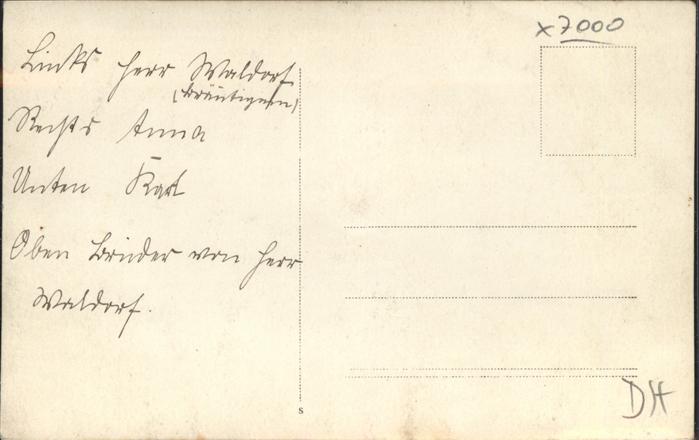 x7000
Links Herr Waldorf
(Bräutigam)
Rechts Anna
Unten Karl
Oben Bruder von Herr
Waldorf.
s
DH